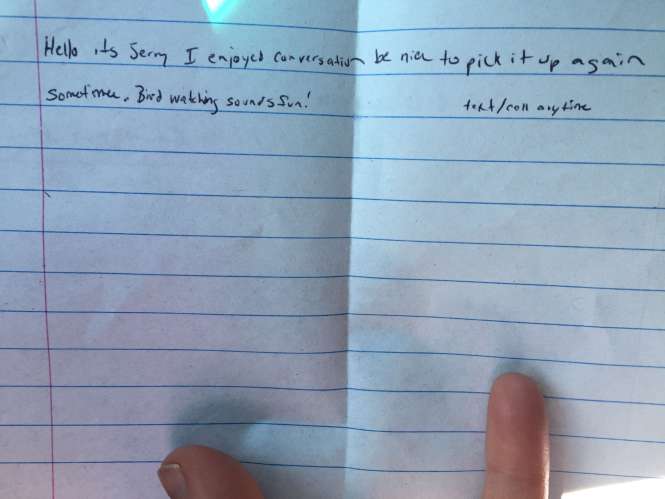 Hello its Jerry I enjoyed conversation be nice to pick it up again
sometime. Bird watching sounds fun! text/call anytime